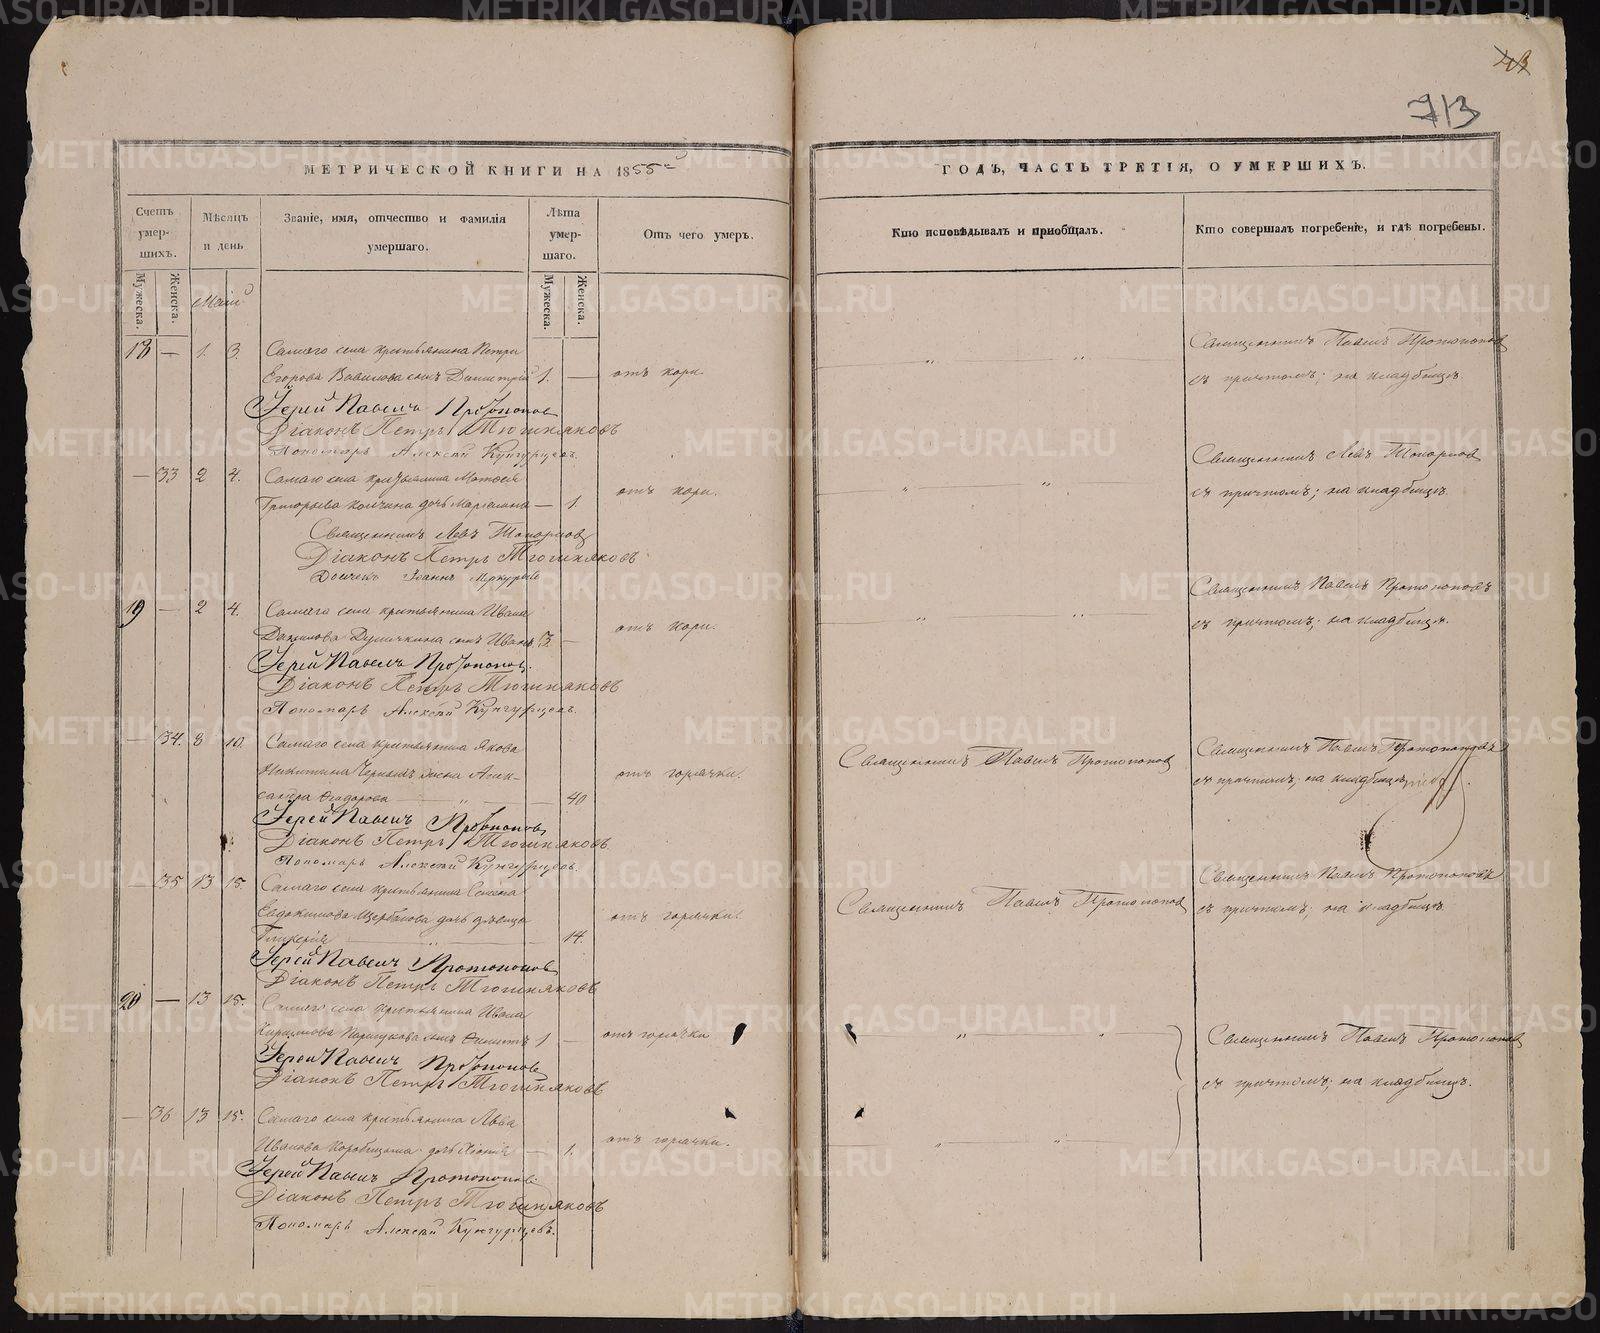 713
МЕТРИЧЕСКОЙ КНИГИ НА 1855
ГОДЪ, ЧАСТЬ ТРЕТІЯ, О УМЕРШИХЪ.
Счетъ умер- шихъ.
Мѣсяцъ и день
Званіе, имя, отчество и фамилія умершаго.
Лѣта умер- шаго.
Отъ чего умеръ.
Кто исповѣдывалъ и приобщалъ.
Кто совершалъ погребеніе, и гдѣ погребены.
Мужеска.
Женска.
Маія
Мужеска.
Женска.
18 — 1. 3. Самаго села крестьянина Петра
Егорова Вавилова сынъ Димитрій 1. — отъ кори
Священникъ Павелъ Протопопов
съ причтомъ; на кладбищѣ.
Іерей Павелъ Протопопов
Діаконъ Петръ Тюшняковъ
Пономарь Алексѣй Кунгурцевъ.
— 33 2 4. Самаго села крестьянина Матвѣя
Григорьева дочь Маріамна — 1. отъ кори.
Священникъ Левъ Топорков
съ причтомъ; на кладбищѣ.
Священникъ Левъ Топорков
Діаконъ Петръ Тюшняковъ
Іоаннъ Меркурьев
19 — 2 4. Самаго села крестьянина Ивана
сынъ Иванъ 3. — отъ кори.
Священникъ Павелъ Протопоповъ
съ причтомъ; на кладбищѣ.
Іерей Павелъ Протопопов.
Діаконъ Петръ Тюшняковъ
Пономарь Алексѣй Кунгурцевъ.
— 34. 8 10. Самаго села крестьянина Якова
Никитина жена Алек-
сандра Ѳеодорова — 40 отъ горячки.
Священникъ Павелъ Протопопов
Священникъ Павелъ Протопоповъ
съ причтомъ; на кладбищѣ
Іерей Павелъ Протопопов
Діаконъ Петръ Тюшняковъ
Пономарь Алексѣй Кунгурцевъ.
— 35 13 15. Самаго села крестьянина Семена
Евдокимова Щербакова дочь дѣвица
Гликерія 14. отъ горячки.
Священникъ Павелъ Протопопов
Священникъ Павелъ Протопоповъ
съ причтомъ; на кладбищѣ
Іерей Павелъ Протопопов
Діаконъ Петръ Тюшняковъ
20 — 13 15. Самаго села крестьянина Ивана
сынъ 1 — отъ горячки
Священникъ Павелъ Протопопов
съ причтомъ; на кладбищѣ.
Іерей Павелъ Протопопов
Діаконъ Петръ Тюшняковъ
— 36 13 15. Самаго села крестьянина Льва
Иванова дочь — 1. отъ горячки.
Іерей Павелъ Протопопов.
Діаконъ Петръ Тюшняковъ
Пономарь Алексѣй Кунгурцевъ.
METRIKI.GASO-URAL.RU